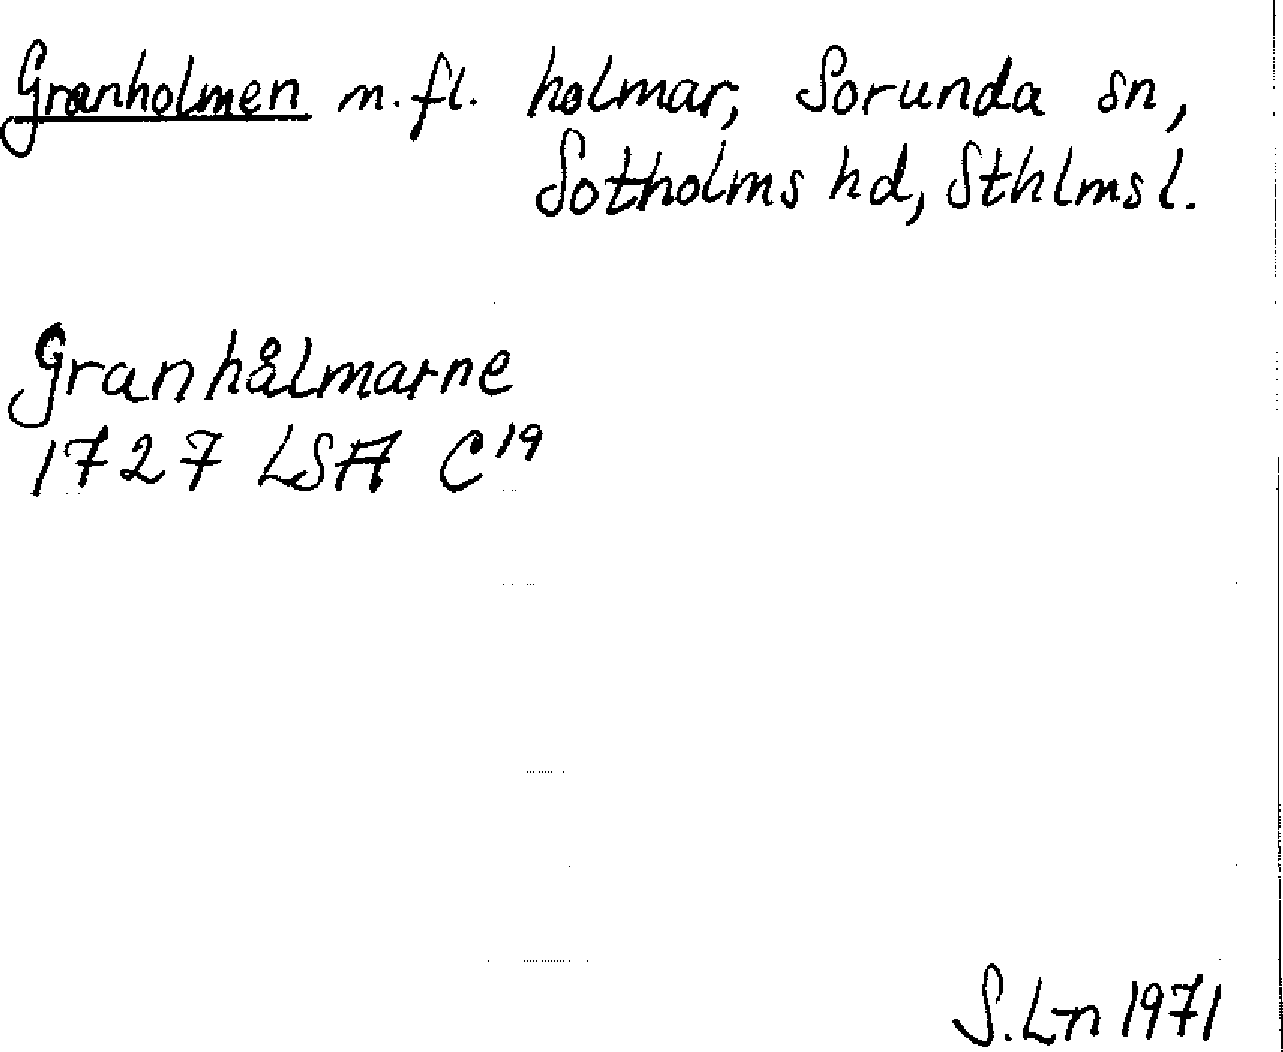 Granholmen m.fl. holmar, Sorunda sn,
Sotholms hd, Sthlms l.
Granhålmarne
1727 LSA C19
S.Ln 1971